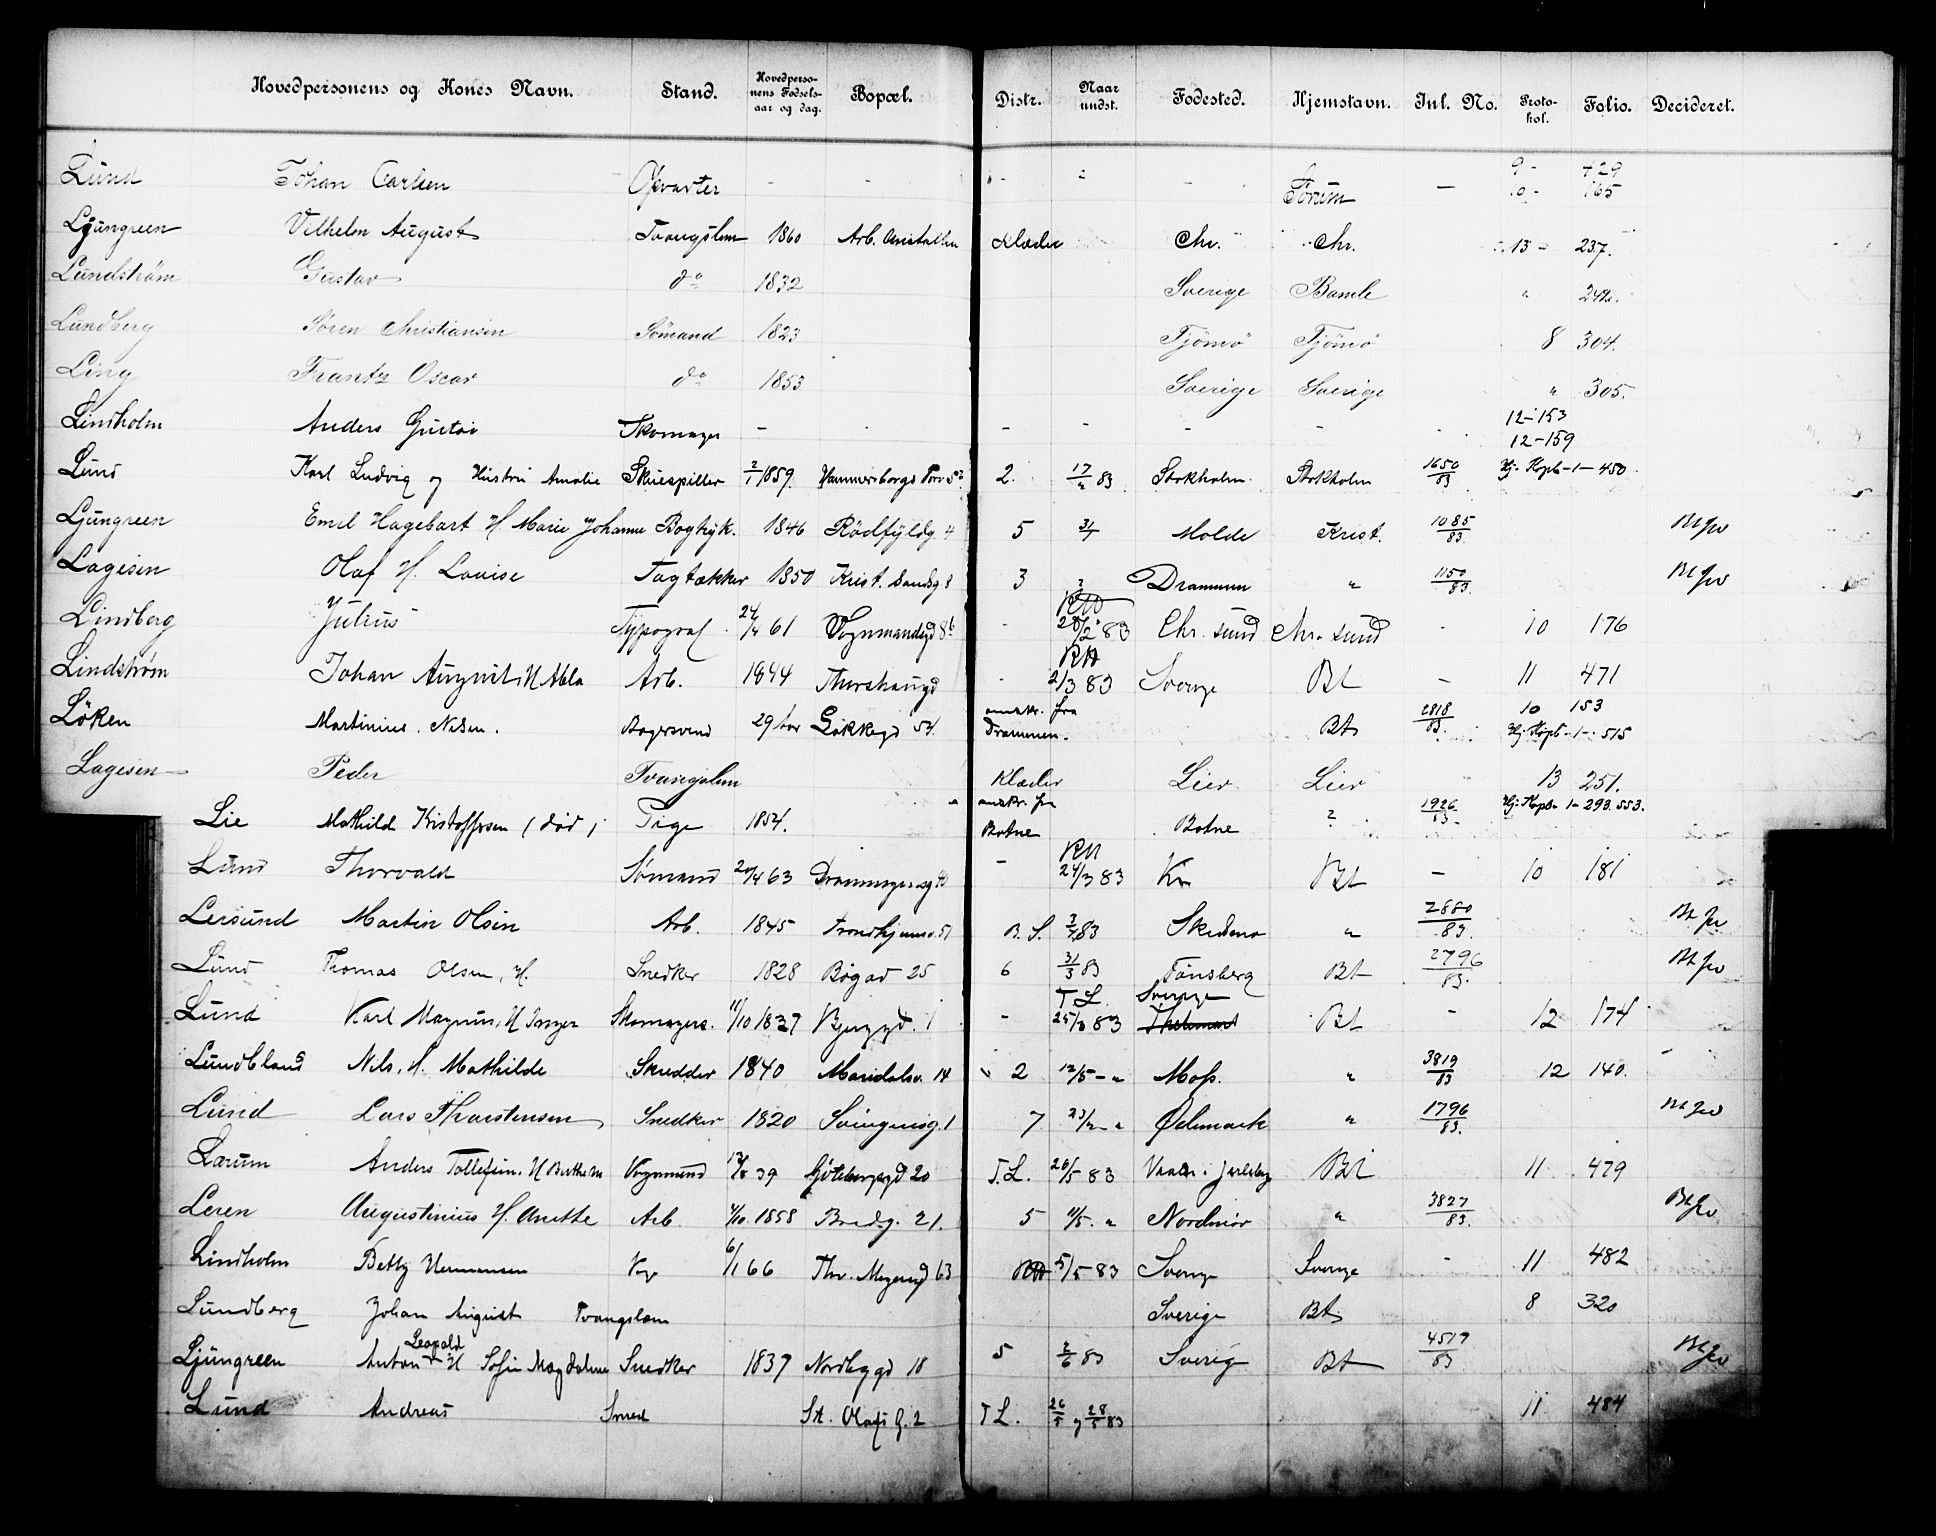 Hovedpersonens og Kones Navn. Stand. Hovedpersonens Fødselsaar og dag. Bopæl. Distr. Naar undst. Fødested. Hjemstavn. Inl. No. Protokol. Folio. Decideret.
Lund Johan Carlsen Opvarter - - - - Sørum - 9 - 429
10 - 165
Ljungreen Vilhelm August Tvangslem 1860 Arb. Anstalten Klæder Chr. Chr. 13 - 237.
Lundstrøm Gustav do 1832 Sverige Bamle " 242.
Lundberg Søren Christiansen Sömand 1823 Tjömö Tjömö 8 304.
Ling Frantz Oscar do 1853 Sverige Sverige " 305.
Lindholm Anders Gustav Skomager - - - - - 12-153
12-159
Lund Karl Ludvig og Hustru Amalie Skuespiller 2/1 1859. Hammersborgs Torv 5 2. 17/" 83 Stokholm. Stokholm 1650/83 Hj. Kopb-1-450.
Ljungreen Emil Hagebart H Marie Johanne Bogtryk. 1846 Rødfyldg. 4 5 31/1 Molde Krist. 1085/83 Bt Jw
Lagesen Olaf H. Lovise Tagtækker 1850 Krist. Sandsg 8 3 2 Drammen " 1150/83 Bt Jw
Lindberg Julius Typograf 24/4 61 Vognmandsgd 8 b - RM 28/2 83 Chr. sund Chr. sund 10 176
Lindström Johan August, H Abla Arb. 1844 Thorshaugd - RM 2/3 83 Sverige Bt - 11 471
Löken Martinius Nilsen. Bagersvend 29 aar Løkkegd 54. anskr. fra Drammen. Bt 2818/83. 10 153
Hj. Kopb-1-515
Lagesen Peder Tvangslem Klæder Lier Lier 13 251.
Lie Mathild Kristoffersen (død) Pige 1854. anskr. fra Botne Botne ? 1926/83 Hj. Kopb-1-293.553.
Lund Thorvald Sømand 20/4 63 - RM 24/3 83 Kr Bt - 10 181
Lersund Martin Olsen Arb. 1845 Trondhjemsv. 51 B. S. 2/4 83 Skedsmo " 2880/83. Bt Jw
Lund Thomas Olsen, H. Snedker 1828 Bøgad 25 6 31/3 83 Tönsberg Bt 2796/83. Bt Jw
Lund Karl Magnus, H Inger Skomagers. 11/10 1837 1 - T L. 25/3 83 Sverige Bt - 12 174
Lundblad Nils, H. Mathilde Skredder 1840 Maridalsv. 14 2 12/5 - " Moss. " 3819/83 12 140.
Lund Lars Thorstensen Snedker 1820 Svingensg. 1 7 23/" " Ødemark " 1796/83. Bt Jw
Larum Anders Tollefsen, H Berthe M Vognmand 12/8 39 Göteborgsgd 20 T. L. 26/5 83 Vaale i Jarlsberg Bt 11 479
Leren Augustinius H. Anette Arb. 4/10. 1858 Bredg. 21. 5 11/5. " Nordmör " 3827/83. Bt Jw
Lindholm Betty Hermansen 6/1 66 Thv. Meyersgd 63 RM 5/5 83 Sverige Sverige - 11 482
Lundberg Johan August Tvangslem Sverige Bt 8 320
Ljungreen Anton Leopold H Sofie Magdalene Snedker 1837 Nordbygd 18 5 2/6 83 Sverig Bt 4517/83 Bt Jw
Lund Andreas Smed St. Olafs G. 2 T L. 26/5 g 28/5 83 11 484